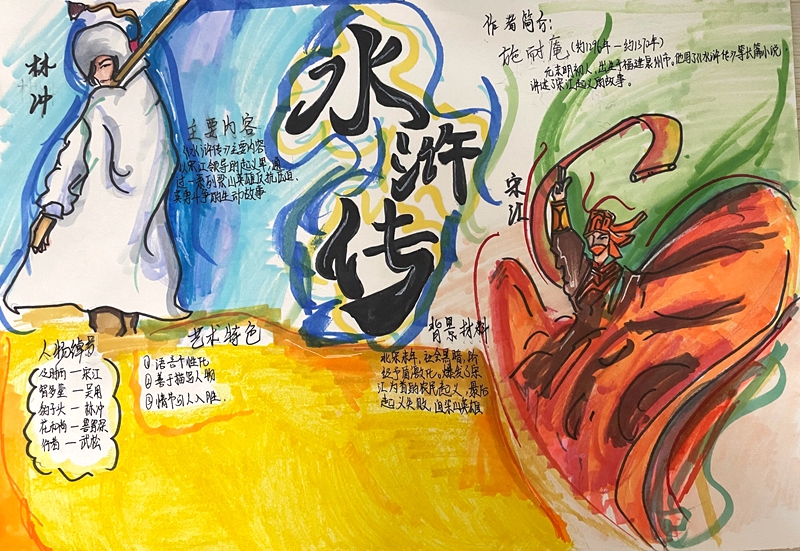 水浒传
林冲
主要内容
《水浒传》主要内容
以宋江领导的起义军,通
过一系列梁山英雄反抗压迫、
英勇斗争的生动故事
作者简介:
施耐庵(约1296年—约1372年)
元末明初人,出生于福建泉州市。他用了《水浒传》等长篇小说
讲述了宋江起义的故事。
宋江
人物绰号
及时雨—宋江
智多星—吴用
豹子头—林冲
花和尚—鲁智深
行者—武松
艺术特色
①语言个性化
②善于描写人物
③情节引人入胜.
背景材料
北宋末年,社会黑暗,阶
级矛盾激化。爆发了宋
江为首的农民起义,最后
起义失败,